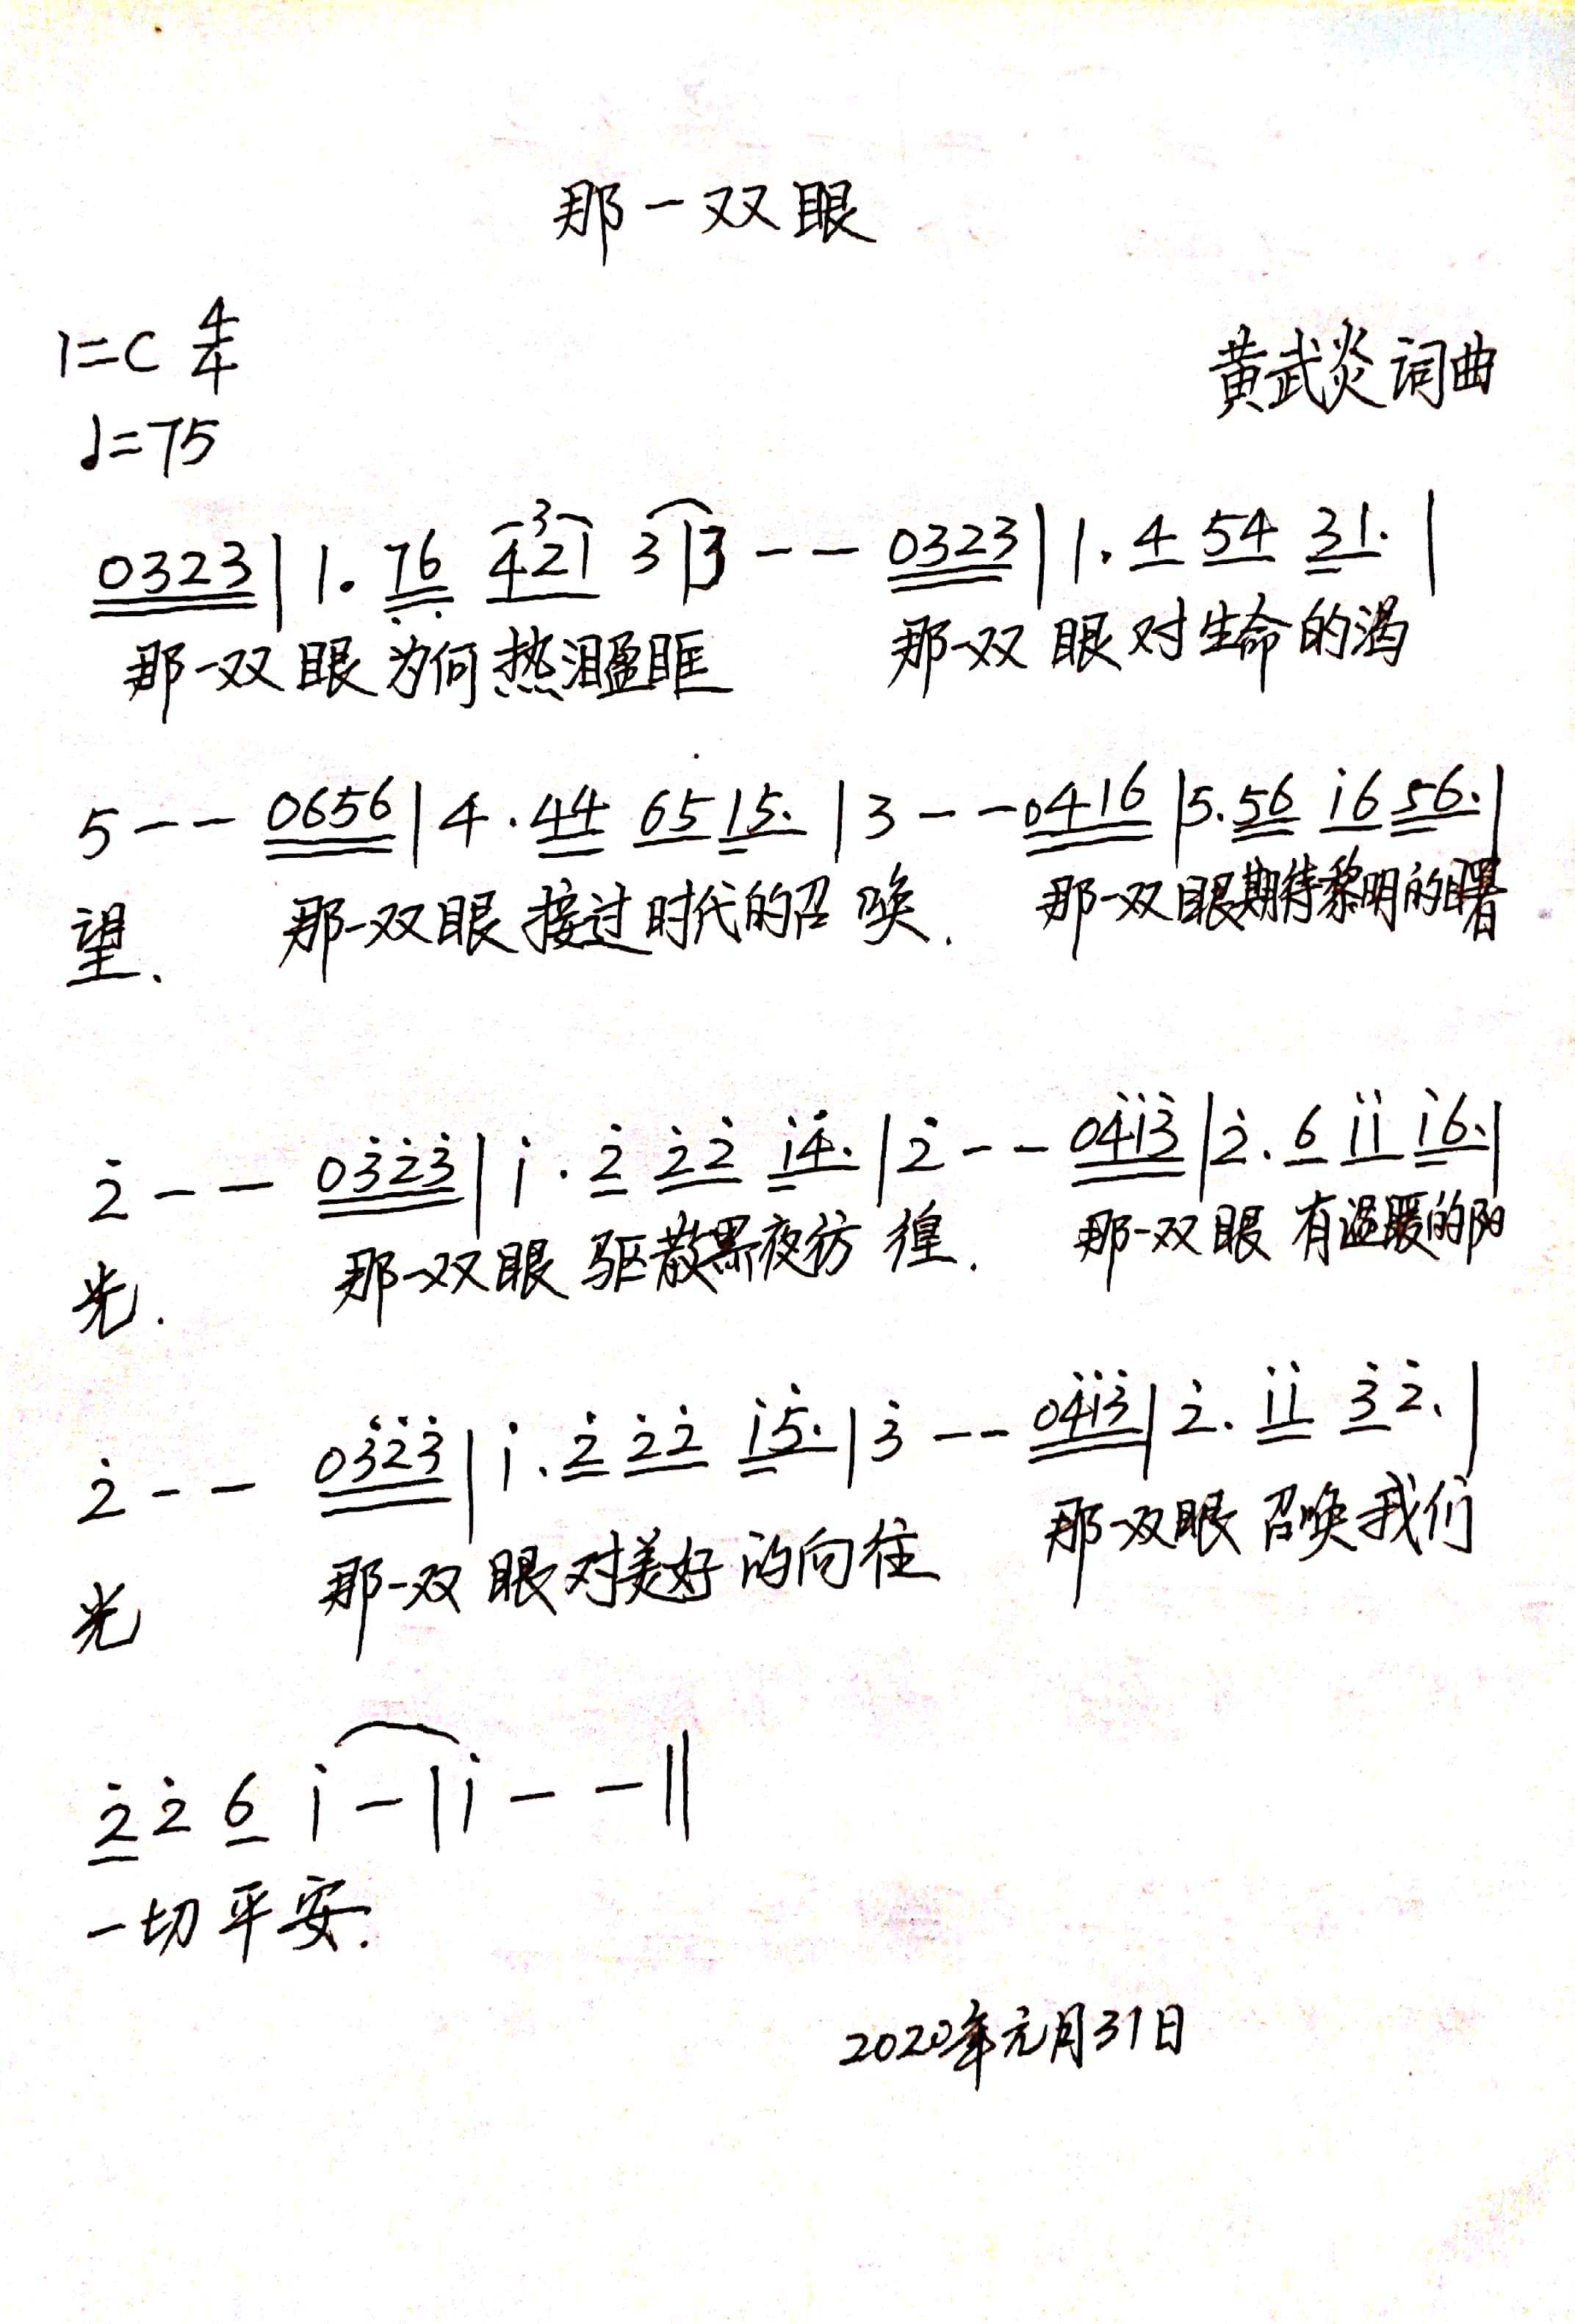 那一双眼
1=C 4/4
黄武炎词曲
♩=75
0323 | 1. 76 421 3 | 3 - - 0323 | 1. 4 54 31. |
那一双眼为何热泪盈眶 那一双眼对生命的渴
5 - - 0656 | 4. 44 65 15. | 3 - - 0416 | 5. 56 i6 56. |
望. 那一双眼接过时代的召唤. 那一双眼期待黎明的曙
2̇ - - 03̇2̇3̇ | i. 2̇ 2̇2̇ i4̇. | 2̇ - - 04̇i3̇ | 2̇. 6 ii i6. |
光. 那一双眼驱散黑夜彷徨. 那一双眼有温暖的阳
2̇ - - 03̇2̇3̇ | i. 2̇ 2̇2̇ i5̇. | 3̇ - - 04̇i3̇ | 2̇. ii 3̇ 2̇. |
光 那一双眼对美好的向往 那一双眼召唤我们
2̇ 2̇ 6 i - | i - - ‖
一切平安.
2020年元月31日